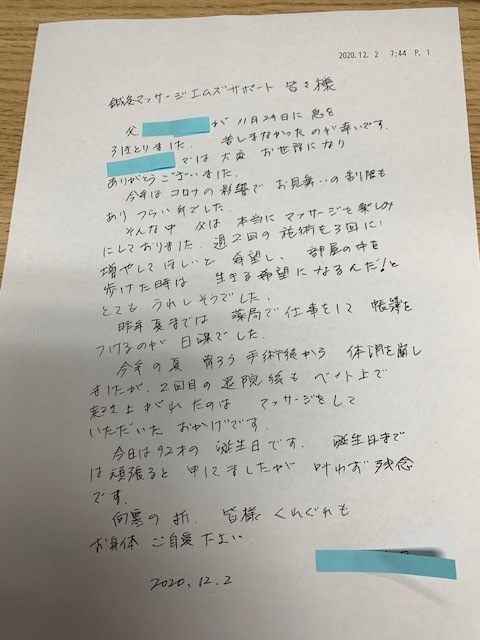 2020.12. 2 7:44 P. 1
鍼灸マッサージエムズサポート 皆々様
父 が 11月29日に息を
引きとりました. 苦しまなかったのが幸いです.
では 大変 お世話になり
ありがとうございました.
今年は コロナの影響で お見舞いの制限も
あり つらい年でした.
そんな中 父は 本当に マッサージを楽しみ
にしておりました. 週2回の施術も3回に
増やしてほしいと 希望し、部屋の中を
歩けた時は 生きる希望になるんだ!と
とても うれしそうでした.
昨年夏までは 薬局で仕事をして 帳簿を
つけるのが 日課でした.
今年の夏 胃ろう手術後から 体調を崩し
ましたが、2回目の退院後も ベット上で
起き上がれたのは マッサージをして
いただいた おかげです.
今日は92才の 誕生日です. 誕生日まで
は頑張ると 申してましたが 叶わず 残念
です.
向寒の折. 皆様 くれぐれも
お身体 ご自愛下さい.
2020.12.2